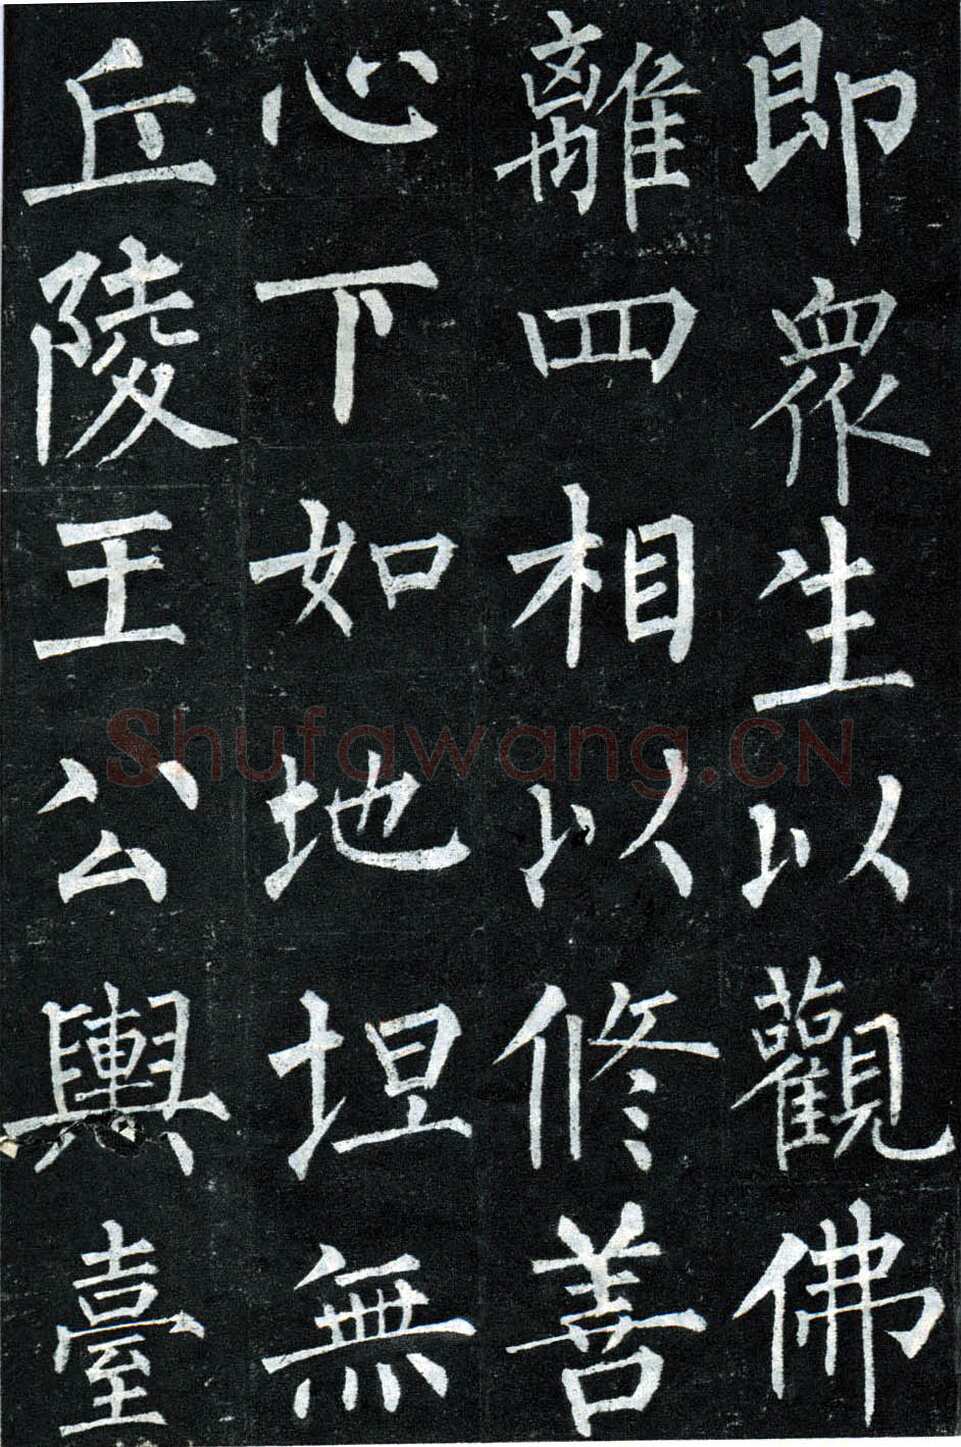 即衆生以觀佛
離四相以修善
心下如地坦無
丘陵王公輿臺
Shufawang.CN